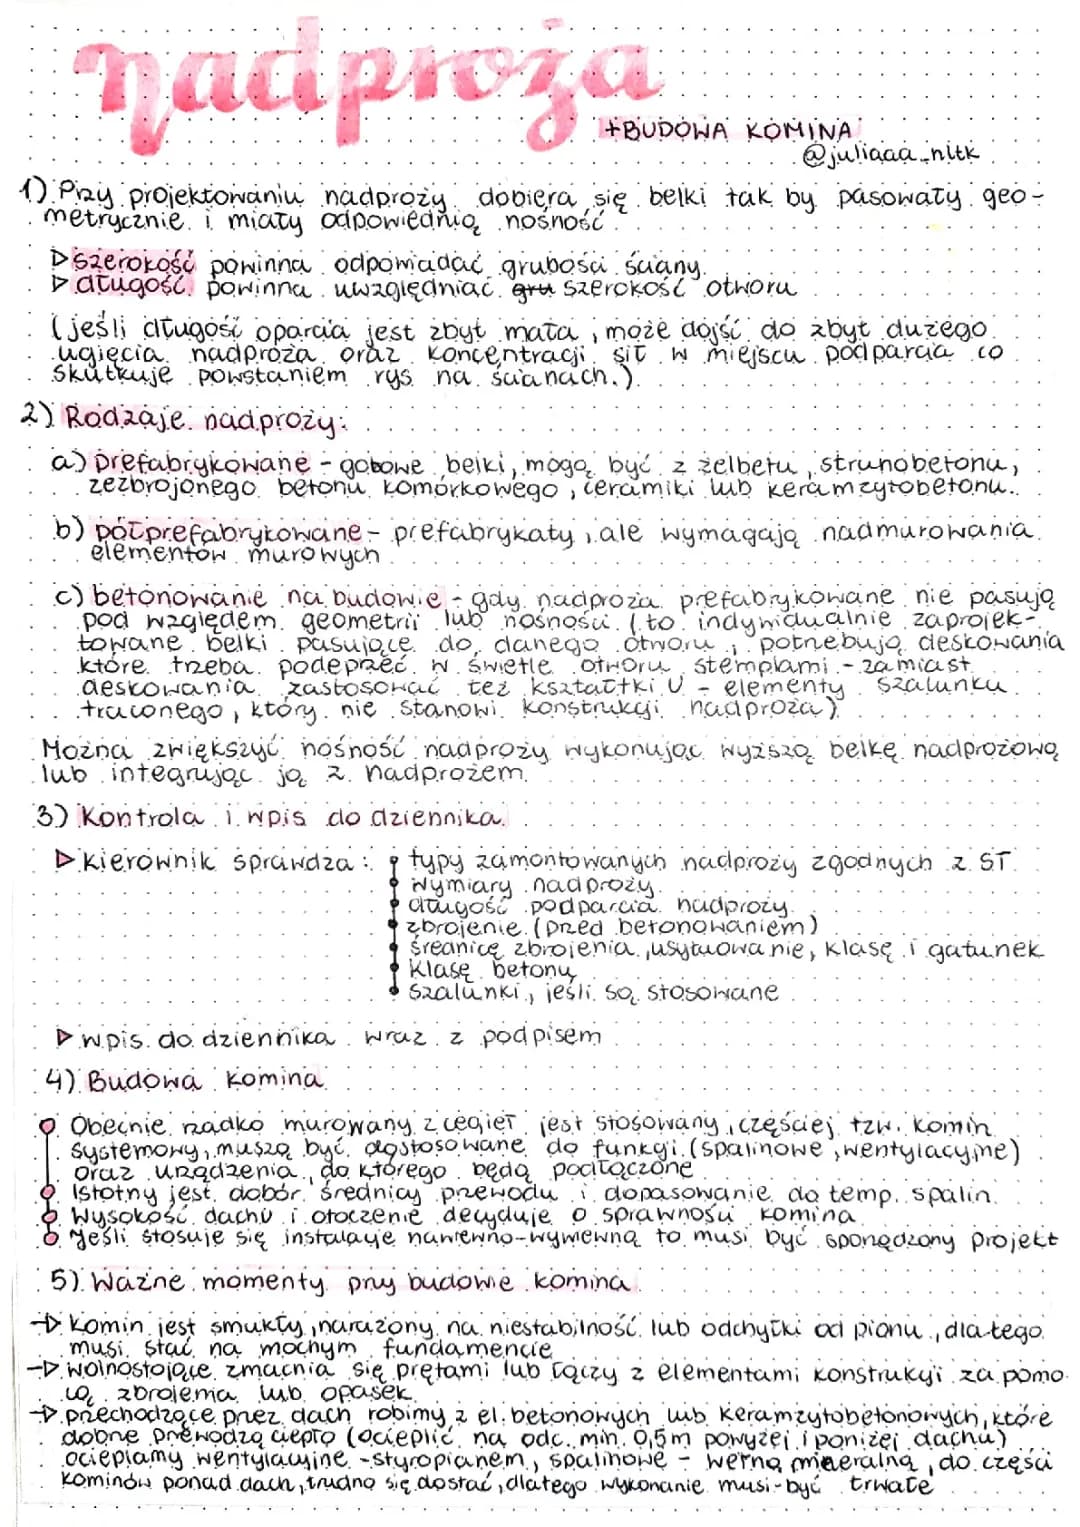 nadproża
+BUDOWA KOMINA
@juliaaa_nltk
1) Przy projektowaniu nadproży dobiera się belki tak by pasowały geo-
metrycznie i miały odpowiednią nośność.
▷ szerokość powinna odpowiadać grubości ściany.
▷ długość powinna uwzględniać gru szerokość otworu
(jeśli długość oparcia jest zbyt mała, może dojść do zbyt dużego
ugięcia nadproża oraz koncentracji sił w miejscu podparcia co
skutkuje powstaniem rys na ścianach.)
2) Rodzaje nadproży:
a) prefabrykowane - gotowe belki, mogą być z żelbetu, strunobetonu,
zezbrojonego betonu komórkowego, ceramiki lub keramzytobetonu.
b) półprefabrykowane - prefabrykaty, ale wymagają nadmurowania
elementów murowych
c) betonowanie na budowie - gdy nadproża prefabrykowane nie pasują
pod względem geometrii lub nośności. (to indywidualnie zaprojek-
towane belki pasujące do danego otworu, potrzebują deskowania
które trzeba podeprzeć w świetle otworu stemplami - zamiast
deskowania zastosować też kształtki U - elementy szalunku
traconego, który nie stanowi konstrukcji nadproża)
Można zwiększyć nośność nadproży wykonując wyższą belkę nadprożową
lub integrując ją z nadprożem.
3) Kontrola i wpis do dziennika.
▷ kierownik sprawdza: • typy zamontowanych nadproży zgodnych z ST.
• wymiary nadproży.
• długość podparcia nadproży.
• zbrojenie (przed betonowaniem)
• średnicę zbrojenia, usytuowanie, klasę i gatunek
• klasę betonu
• szalunki, jeśli są stosowane
▷ wpis do dziennika wraz z podpisem
4) Budowa komina
Obecnie rzadko murowany z cegieł jest stosowany, częściej tzw. komin
systemowy, muszą być dostosowane do funkcji (spalinowe, wentylacyjne)
oraz urządzenia, do którego będą podłączone
Istotny jest dobór średnicy przewodu i dopasowanie do temp. spalin.
Wysokość dachu i otoczenie decyduje o sprawności komina
Jeśli stosuje się instalacje nawiewno-wywiewną to musi być sporządzony projekt
5) Ważne momenty przy budowie komina
→ Komin jest smukły, narażony na niestabilność lub odchyłki od pionu, dlatego
musi stać na mocnym fundamencie
→ wolnostojące zmacnia się prętami lub łączy z elementami konstrukcji za pomo-
cą zbrojenia lub opasek
→ przechodzące przez dach robimy z el. betonowych lub keramzytobetonowych, które
dobrze przewodzą ciepło (ocieplić na odc. min. 0,5m powyżej i poniżej dachu)
ocieplamy wentylacyjne - styropianem, spalinowe - wełną mineralną, do części
kominów ponad dach, trudno się dostać, dlatego wykonanie musi być trwałe